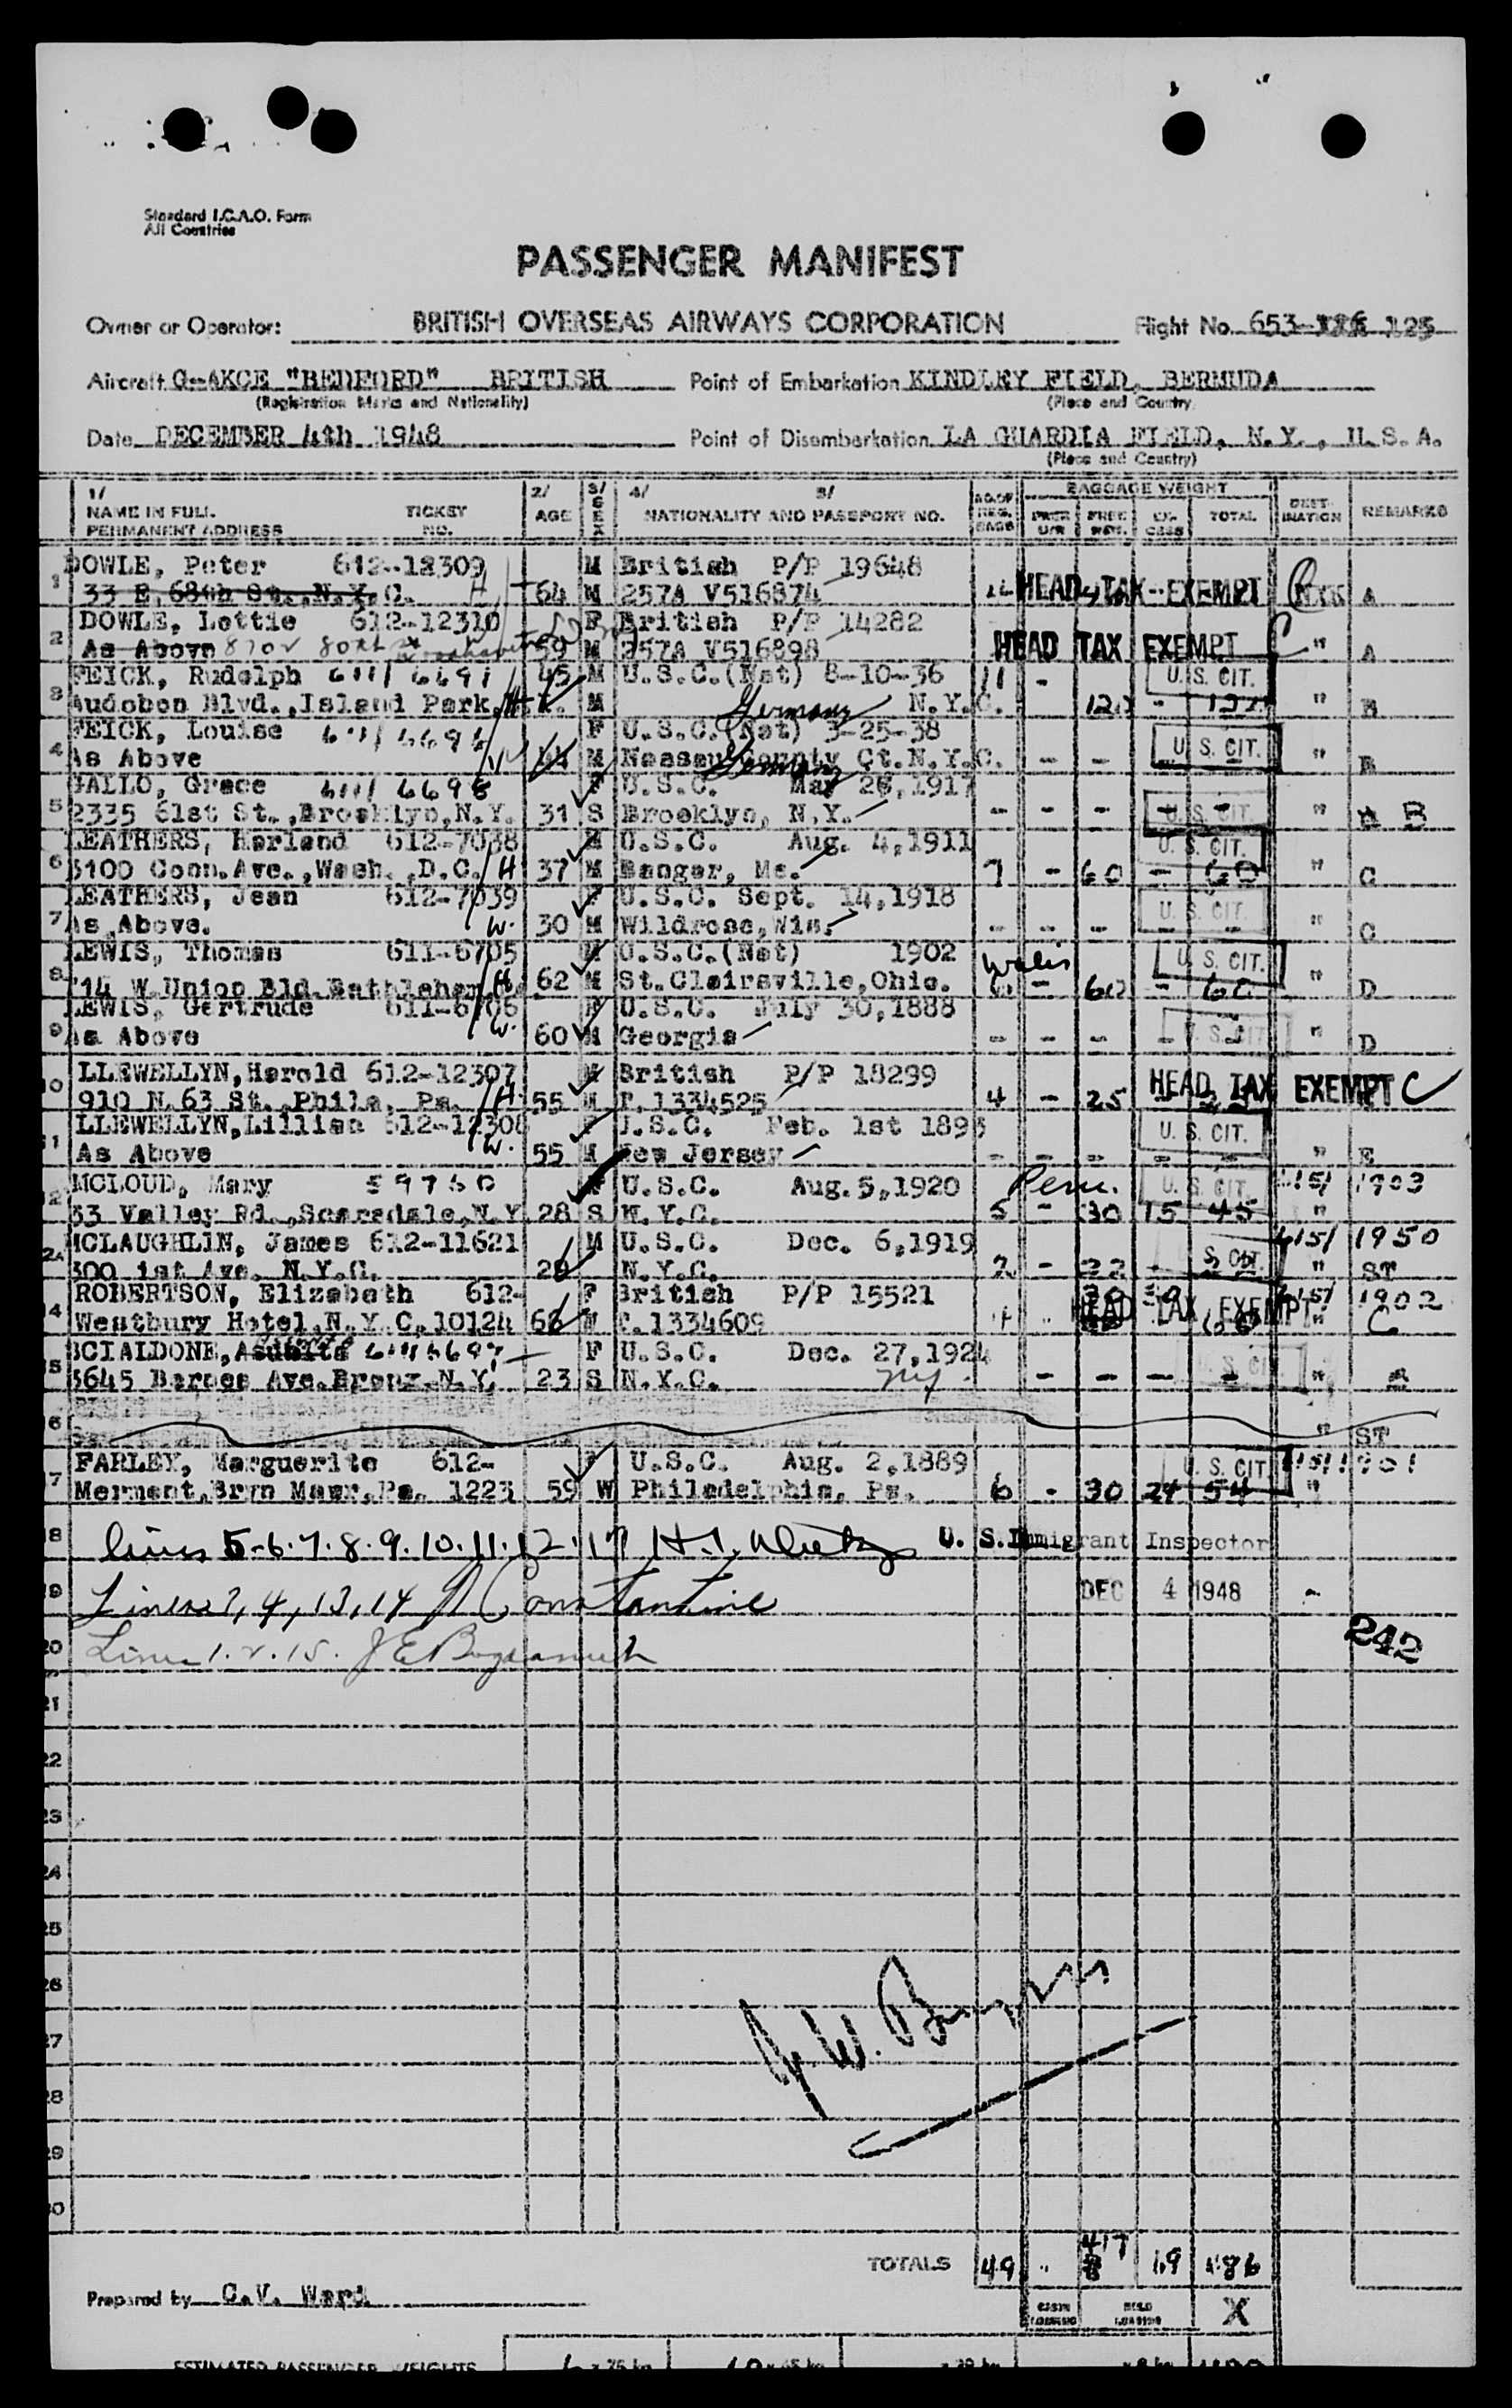 Standard I.C.A.O. Form
All Countries
PASSENGER MANIFEST
Owner or Operator: BRITISH OVERSEAS AIRWAYS CORPORATION Flight No. 653- 125
Aircraft G-AKCE "BEDFORD" BRITISH Point of Embarkation KINDLEY FIELD, BERMUDA
(Registration Marks and Nationality) (Place and Country
Date DECEMBER 4th 1948 Point of Disembarkation LA GUARDIA FIELD, N.Y., U.S.A.
(Place and Country)
1/ 2/ 3/ 4/ 5/ BAGGAGE WEIGHT
NAME IN FULL TICKET AGE SEX NATIONALITY AND PASSPORT NO. NO. OF REG. BAGS FREE TOTAL DESTINATION REMARKS
PERMANENT ADDRESS NO.
DOWLE, Peter 612-12309 M British P/P 19648
1 33 E. 68th St., N.Y.C. H 64 M 257A V516874 HEAD TAX EXEMPT A
DOWLE, Lottie 612-12310 F British P/P 14282
2 As Above 8702 80th 59 M 257A V516898 HEAD TAX EXEMPT C " A
FEICK, Rudolph 611/6691 45 M U.S.C.(Nat) 8-10-36 11 - U.S. CIT.
3 Audobon Blvd.,Island Park, M Germany N.Y.C. 122 - 122 " B
FEICK, Louise F U.S.C.(Nat) 3-25-38 U.S. CIT.
4 As Above 44 M Nassau County Ct.N.Y.C. Germany - - " B
GALLO, Grace 611/6698 F U.S.C. May 26,1917
5 2335 61st St.,Brooklyn,N.Y. 31 S Brooklyn, N.Y. - - - U.S. CIT. " B
LEATHERS, Harland 612-7038 M U.S.C. Aug. 4,1911 U.S. CIT.
6 5100 Conn.Ave.,Wash.,D.C. H 37 M Bangor, Me. 7 - 60 - 60 " C
LEATHERS, Jean 612-7039 F U.S.C. Sept. 14,1918 U.S. CIT.
7 As Above. W. 30 M Wildrose,Wis. - - - - - " C
LEWIS, Thomas 611-6705 M U.S.C.(Nat) 1902 Wales U.S. CIT.
8 W.Union Bld.Bethlehem H. 62 M St.Clairsville,Ohio. - 60 - 60 " D
LEWIS, Gertrude 611-6706 F U.S.C. July 30,1888
9 As Above W. 60 M Georgia - - - - U.S. CIT. " D
LLEWELLYN,Harold 612-12307 M British P/P 18299 HEAD TAX EXEMPT C
10 910 N.63 St.,Phila, Pa. H. 55 M P.1334525 4 - 25
LLEWELLYN,Lillian 612-12308 F U.S.C. Feb. 1st 1893 U.S. CIT.
11 As Above W. 55 M New Jersey - - - - - " E
MCLOUD, Mary 59760 F U.S.C. Aug.5,1920 U.S. CIT. 1903
12 33 Valley Rd.,Scarsdale,N.Y 28 S N.Y.C. 5 - 30 15 45 "
MCLAUGHLIN, James 612-11621 M U.S.C. Dec. 6,1919 1950
300 1st Ave. N.Y.C. N.Y.C. 2 - 22 - S. CIT. " ST
ROBERTSON, Elizabeth 612- F British P/P 15521 1902
14 Westbury Hotel,N.Y.C.10124 W P.1334609 4 - HEAD TAX EXEMPT " C
SCIALDONE, F U.S.C. Dec. 27,1924
15 3645 Barnes Ave.Bronx,N.Y. 23 S N.Y.C. NY - - - - "
16 " ST
FARLEY, Marguerite 612- F U.S.C. Aug. 2,1889 U.S. CIT. 1901
17 Merment,Bryn Mawr,Pa. 1223 59 W Philadelphia, Pa. 6 - 30 24 54 "
18 Lines 5-6-7-8-9-10-11-12-17 U. S. Immigrant Inspector
19 Lines 3, 4, 13, 14 Constantine DEC 4 1948 -
20 Lines 1. 2. 15. 242
21
22
23
24
25
26
27
28
29
30
TOTALS 49 - 417 486
Prepared by C.V. Ward CABIN LOADING HOLD LOADING X
ESTIMATED PASSENGER WEIGHTS